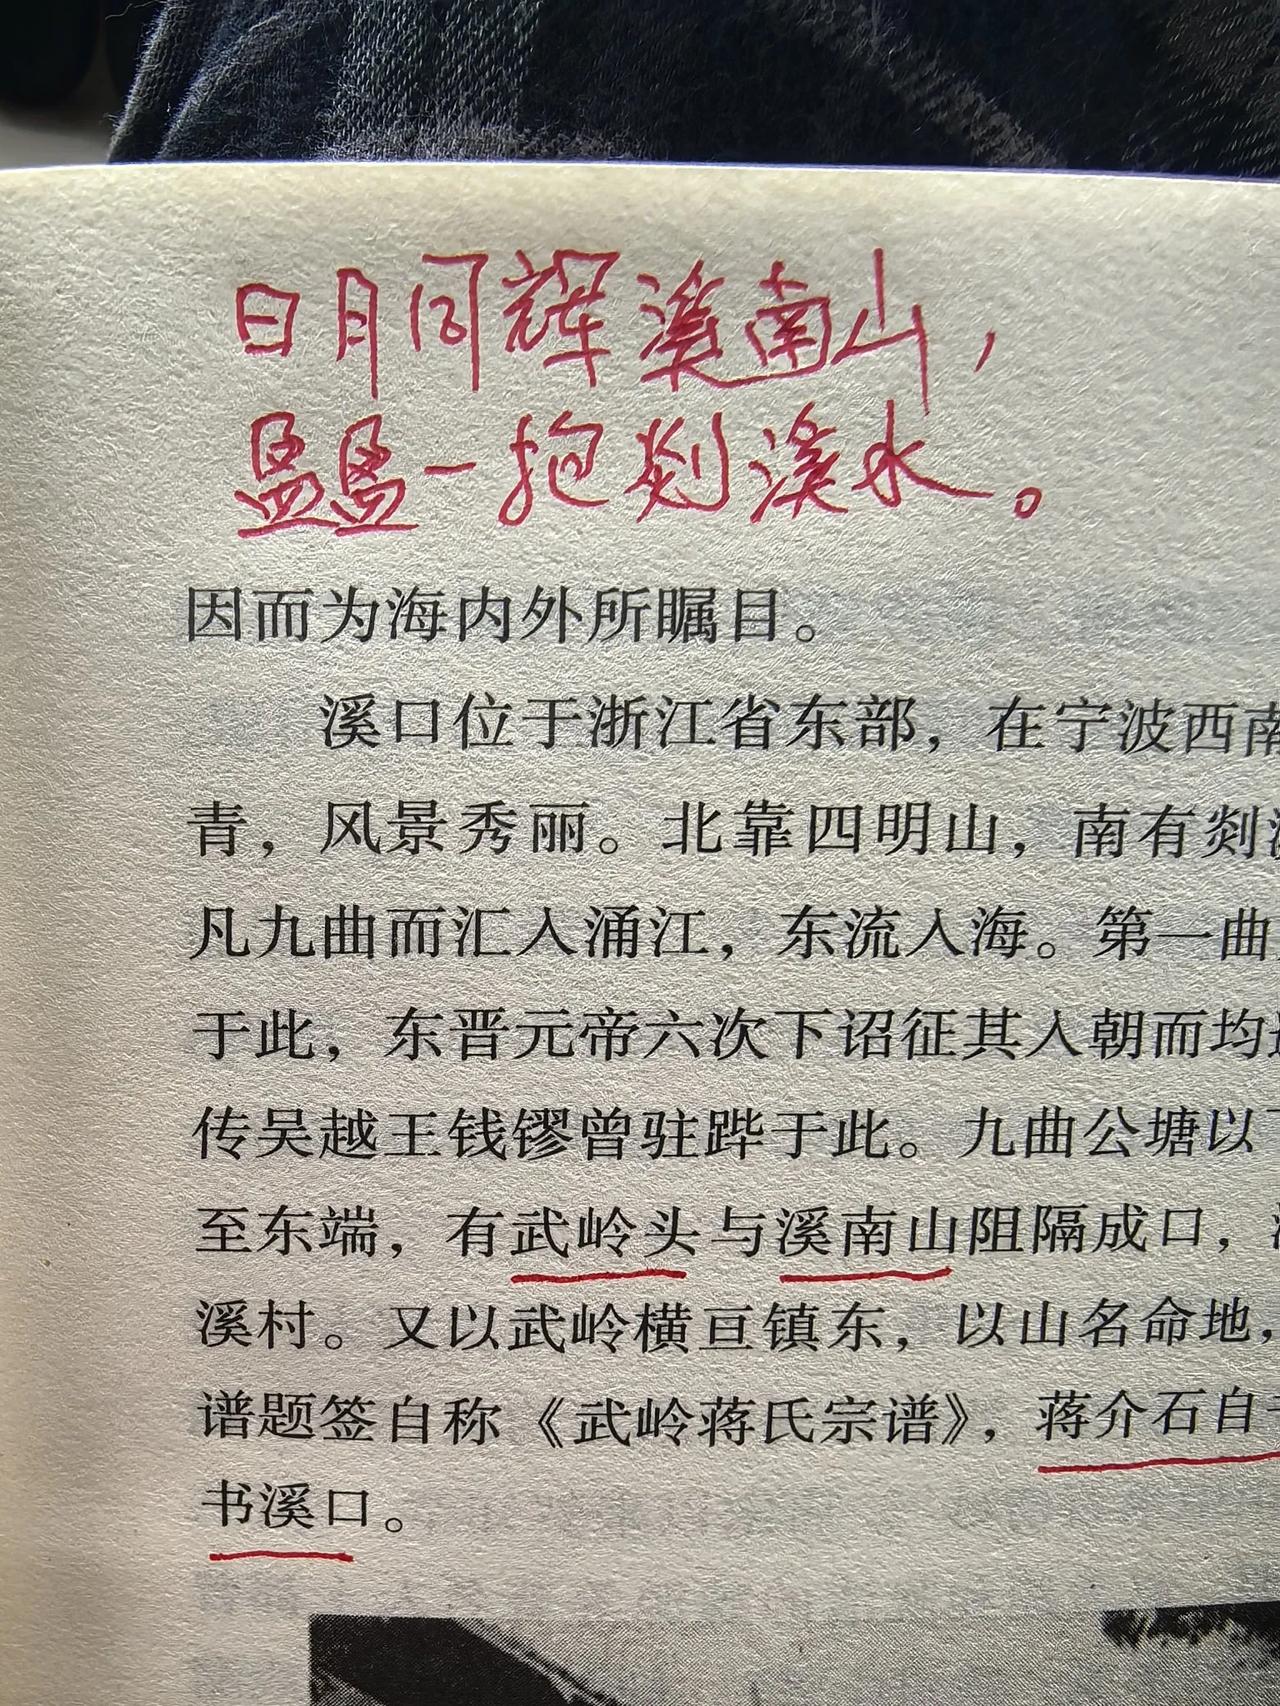 日月同辉溪南山，
盈盈一抱剡溪水。
因而为海内外所瞩目。
溪口位于浙江省东部，在宁波西南
青，风景秀丽。北靠四明山，南有剡
凡九曲而汇入涌江，东流入海。第一曲
于此，东晋元帝六次下诏征其入朝而均
传吴越王钱镠曾驻跸于此。九曲公塘以
至东端，有武岭头与溪南山阻隔成口，
溪村。又以武岭横亘镇东，以山名命地，
谱题签自称《武岭蒋氏宗谱》，蒋介石自
书溪口。